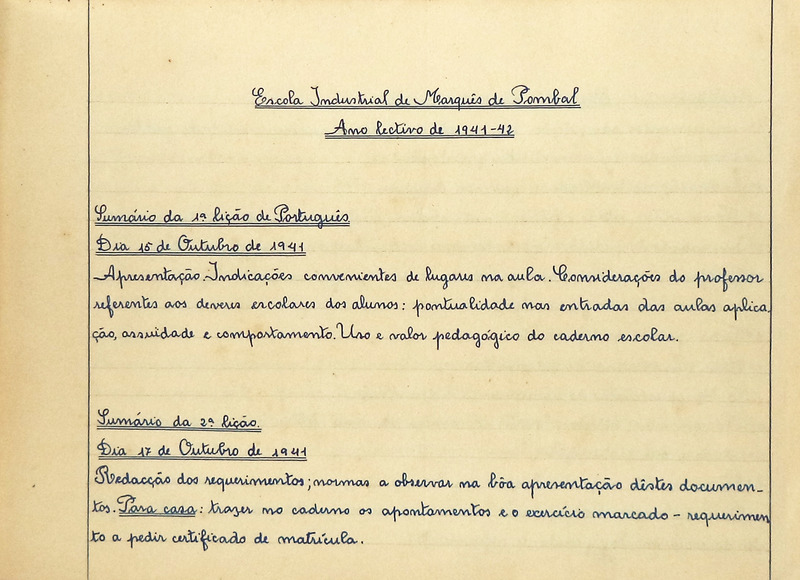 Escola Industrial de Marquês de Pombal
Ano lectivo de 1941-42
Sumário da 1ª lição de Português
Dia 15 de Outubro de 1941
Apresentação. Indicações convenientes de lugares na aula. Considerações do professor
referentes aos deveres escolares dos alunos: pontualidade nas entradas das aulas aplica
ção, assuidade e comportamento. Uso e valor pedagógico do caderno escolar.
Sumário da 2ª lição.
Dia 17 de Outubro de 1941
Redacção dos requerimentos; normas a observar na bôa apresentação dêstes documen-
tos. Para casa: trazer no caderno os apontamentos e o exercício marcado - requerimen
to a pedir certificado de matrícula.